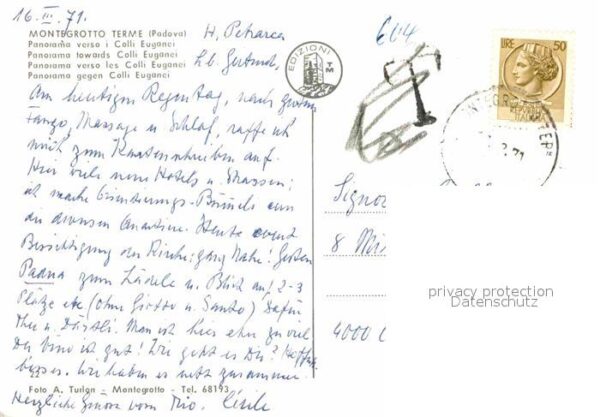 16. III. 71.
H. Petrarca
MONTEGROTTO TERME (Padova)
Panorama verso i Colli Euganei
Panorama towards Colli Euganei
Panorama verso les Colli Euganei
Panorama gegen Colli Euganei
Lb. Gertrud,
EDIZIONI
TM
604
LIRE 50
Am heutigen Regentag, nach gutem
Fango, Massage u Schlaf, raffe ich
mich zum Kartenschreiben auf.
Hier viele neue Hotels u. Strassen;
ich mache Erinnerungs-
an Heute event
Besichtigung der Kirche; ganz nahe! Gestern
Padua zum Lädele u. Blick auf 2-3
Plätze etc (ohne Giotto u. Santo) Dafür
Thee u. Man ist hier eher zu viel
Der vino ist gut! Wie geht es Dir? Hoffentl.
besser. Wir haben es nett zusammen.
22
Foto A. Turlon - Montegrotto - Tel. 68193
Herzliche Grüsse vom Trio. Cécile
Signor
8
4000
privacy protection
Datenschutz